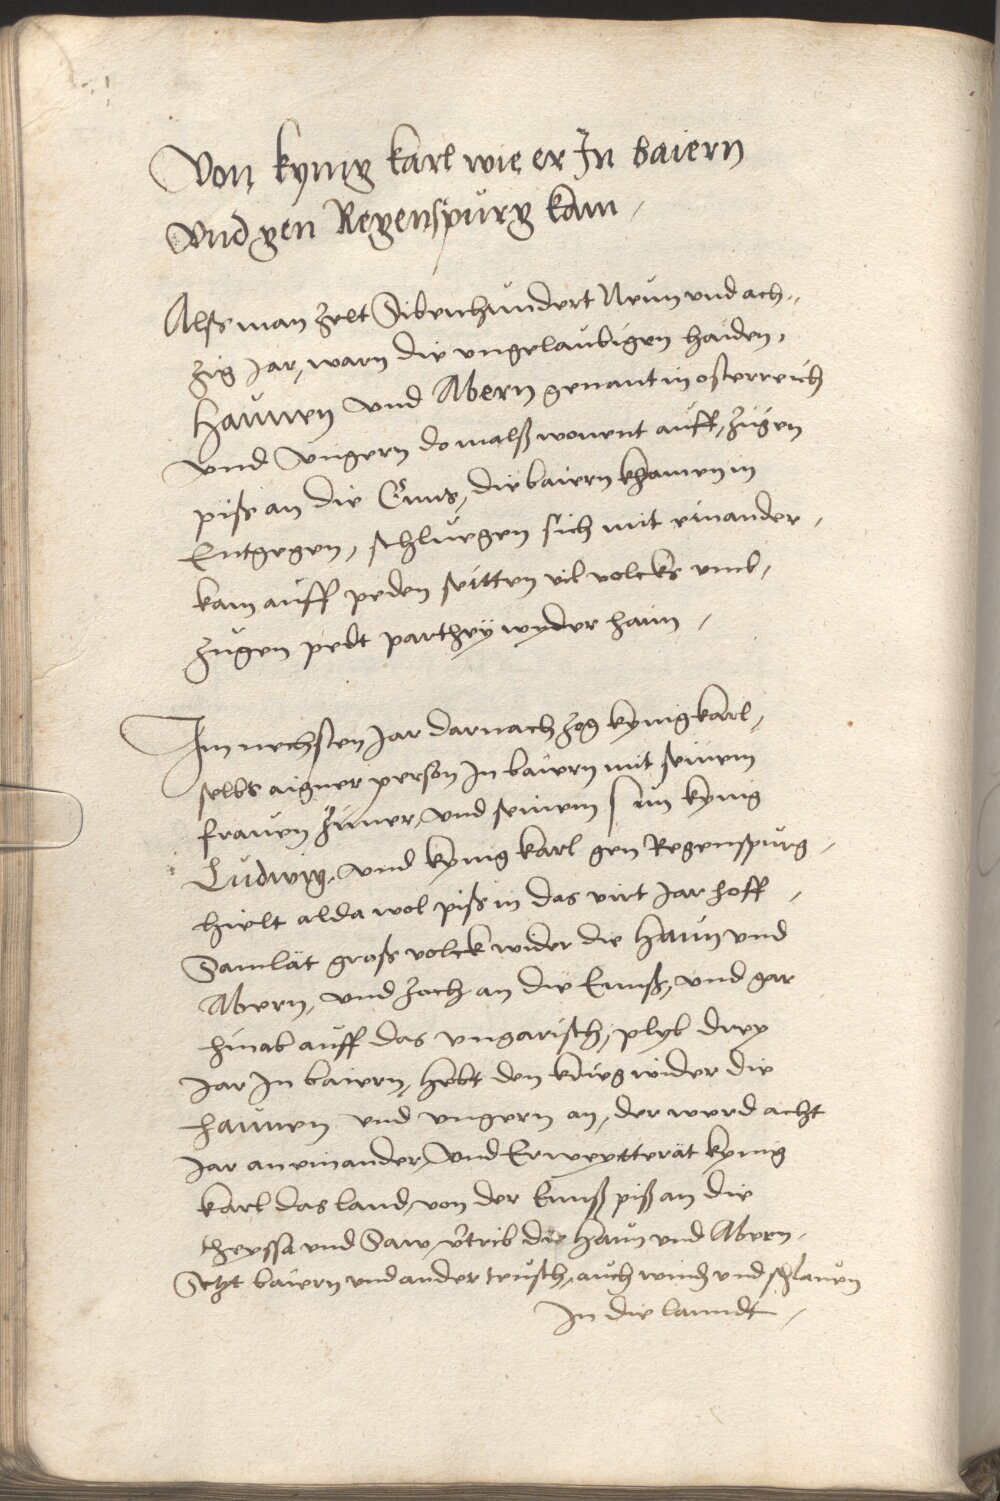 Von kynig karl wie er In baiern
vnd gen Regenspurg kam /
Alss man zelt Sibenhundert Neun vnd ach„
zig Jar, warn die vngelaubigen haiden,
Haunen vnd Abern genant in osterreich
vnd Vngern domalß wonent auff, zugen
piß an die Enns, die baiern khamen in
Entgegen, schluegen sich mit einander,
kam auff peden seitten vil volcks vmb,
zugen pedt parthey wyder haim /
Im nechsten Jar darnach zog kynig karl,
selbs aigner person In baiern mit seinem
frauen zimer, vnd seinem sun kynig
Ludwig, vnd kynig karl gen Regenspurg,
hielt alda wol piß in das virt Jar hoff,
Samlät groß volck wider die Haun vnd
Abern, vnd zoch an die Ennß, vnd gar
hinab auff das vngarisch, plyb drey
Jar In baiern, hebt den krieg wider die
haunen vnd vngern an, der werd acht
Jar an einander, Vnd Erweytterät kynig
karl das land, von der Ennß piß an die
theyssa vnd Saw, v̄trib die Haun vnd Abern,
Setzt baiern vnd ander teusch, auch wind vnd schlauen
In die lanndt /